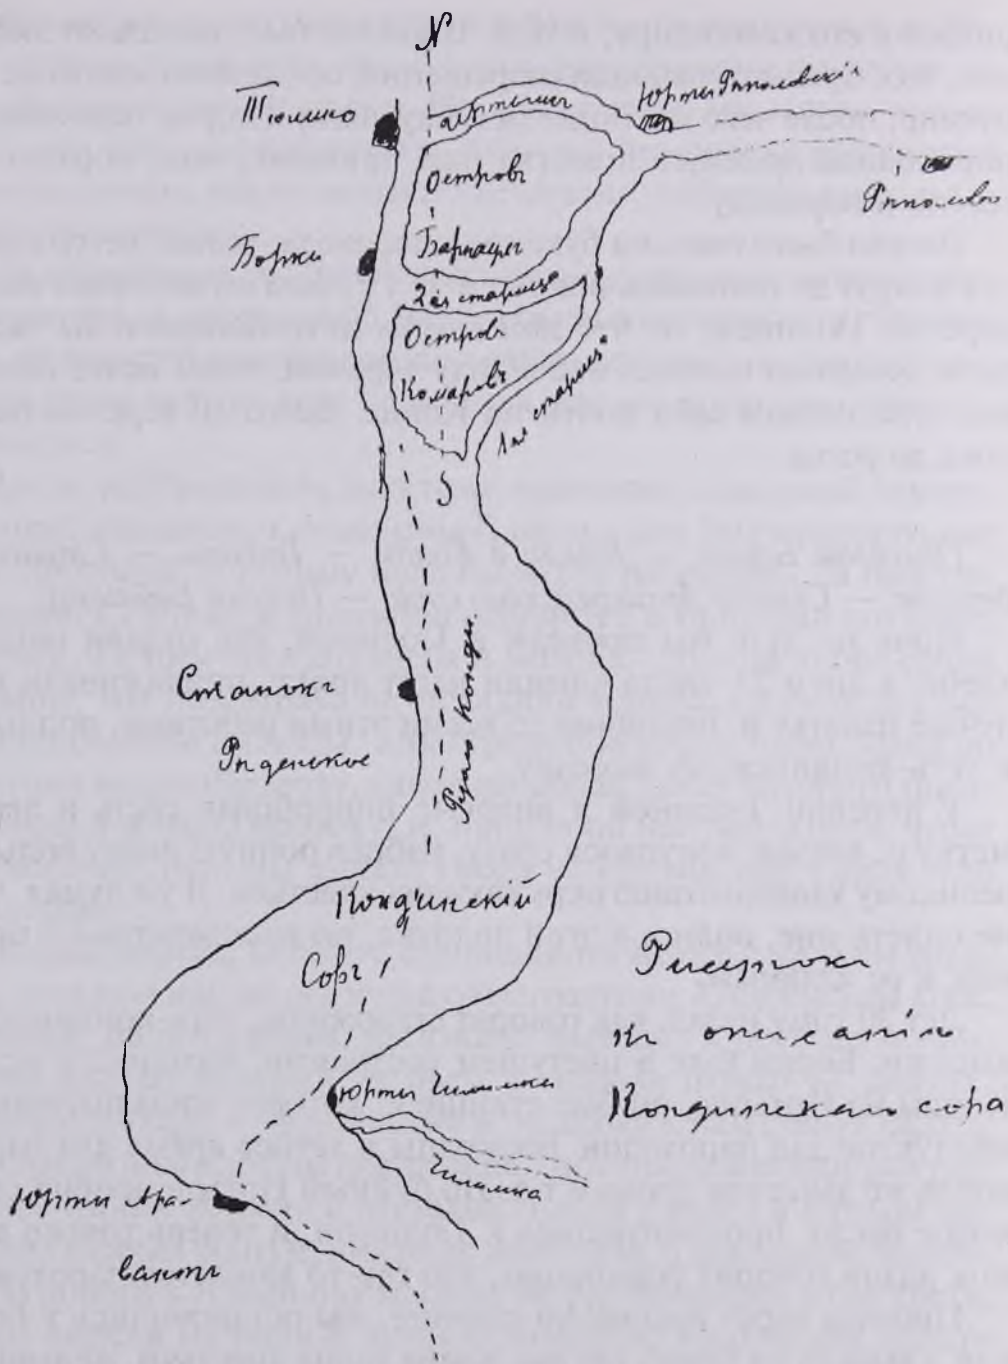 N
Тюлино
Юрты Рыполовскія
Островъ
Барнаулъ
Борки
2ая старица
Островъ
Комаровъ
1ая старица
S
Станокъ
Русло Конды.
Кондинскій
Соръ
Рисунокъ
къ описанію
Кондинскаго сора
Юрты Чилимка
Чилимка
Юрты Ара-
ванты